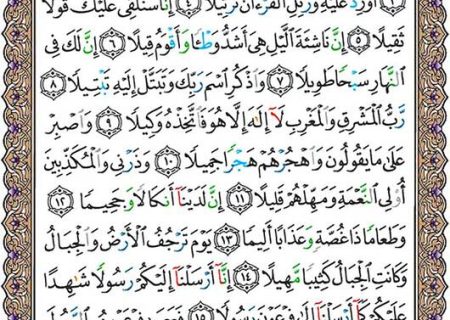 أَوْ زِدْ عَلَيْهِ وَرَتِّلِ ٱلْقُرْءَانَ تَرْتِيلًا ٤ إِنَّا سَنُلْقِى عَلَيْكَ قَوْلًا
ثَقِيلًا ٥ إِنَّ نَاشِئَةَ ٱلَّيْلِ هِىَ أَشَدُّ وَطْـًٔا وَأَقْوَمُ قِيلًا ٦ إِنَّ لَكَ فِى
ٱلنَّهَارِ سَبْحًا طَوِيلًا ٧ وَٱذْكُرِ ٱسْمَ رَبِّكَ وَتَبَتَّلْ إِلَيْهِ تَبْتِيلًا ٨
رَّبُّ ٱلْمَشْرِقِ وَٱلْمَغْرِبِ لَآ إِلَٰهَ إِلَّا هُوَ فَٱتَّخِذْهُ وَكِيلًا ٩ وَٱصْبِرْ
عَلَىٰ مَا يَقُولُونَ وَٱهْجُرْهُمْ هَجْرًا جَمِيلًا ١٠ وَذَرْنِى وَٱلْمُكَذِّبِينَ
أُو۟لِى ٱلنَّعْمَةِ وَمَهِّلْهُمْ قَلِيلًا ١١ إِنَّ لَدَيْنَآ أَنكَالًا وَجَحِيمًا ١٢
وَطَعَامًا ذَا غُصَّةٍ وَعَذَابًا أَلِيمًا ١٣ يَوْمَ تَرْجُفُ ٱلْأَرْضُ وَٱلْجِبَالُ
وَكَانَتِ ٱلْجِبَالُ كَثِيبًا مَّهِيلًا ١٤ إِنَّآ أَرْسَلْنَآ إِلَيْكُمْ رَسُولًا شَٰهِدًا
عَلَيْكُمْ كَمَآ أَرْسَلْنَآ إِلَىٰ فِرْعَوْنَ رَسُولًا ١٥ فَعَصَىٰ فِرْعَوْنُ ٱلرَّسُولَ